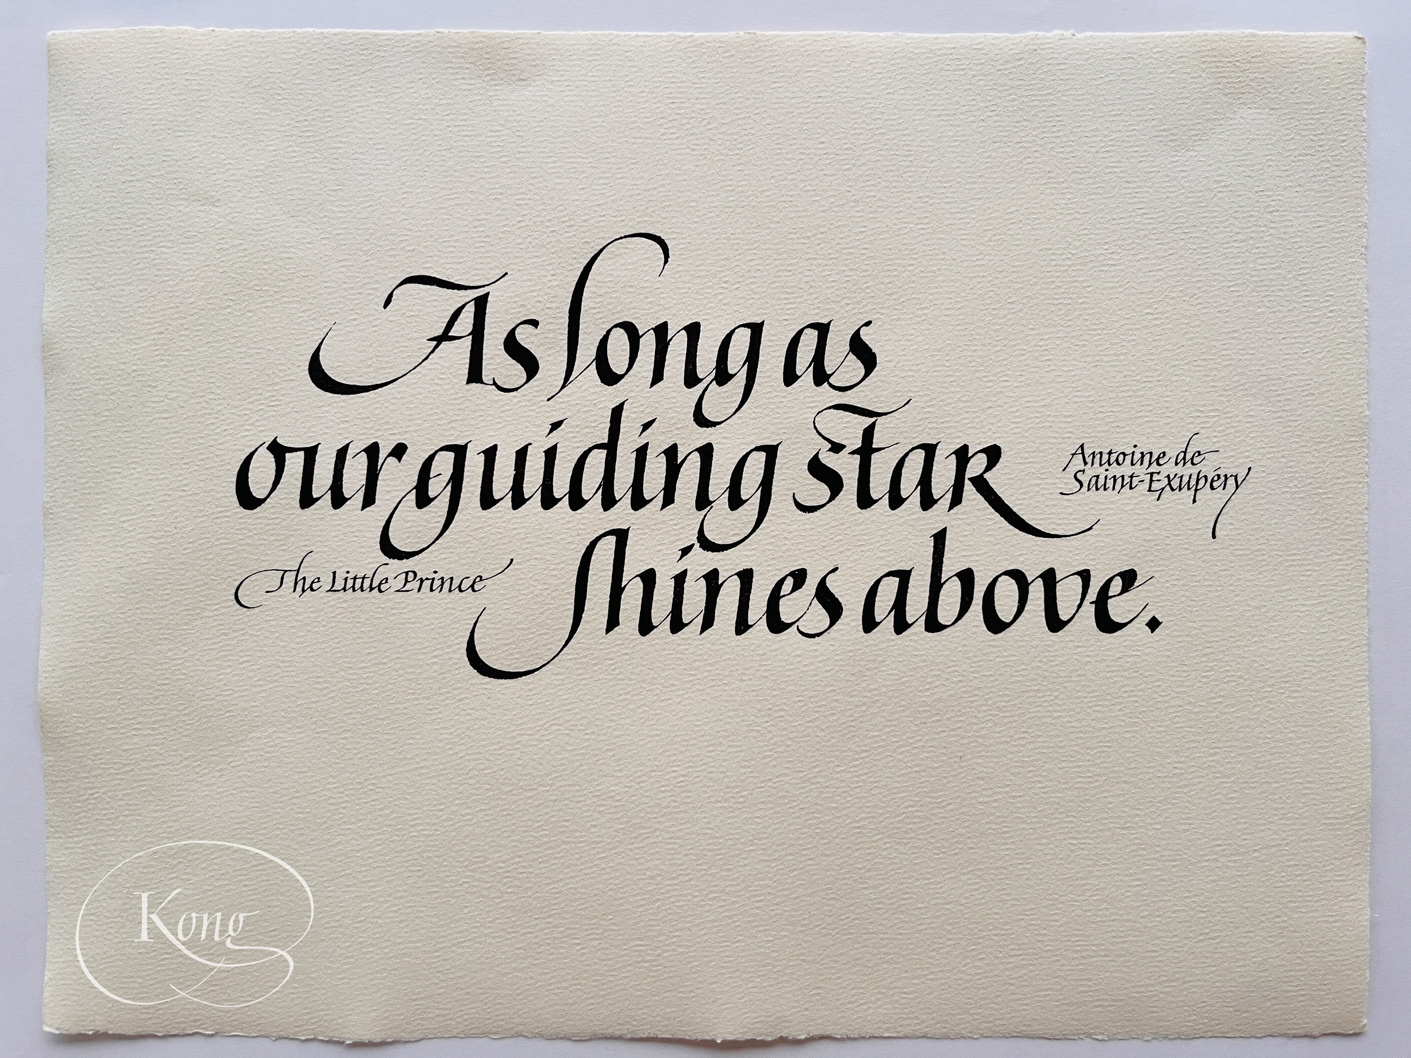 As long as
our guiding star
Antoine de
Saint-Exupéry
The Little Prince
shines above.
Kong